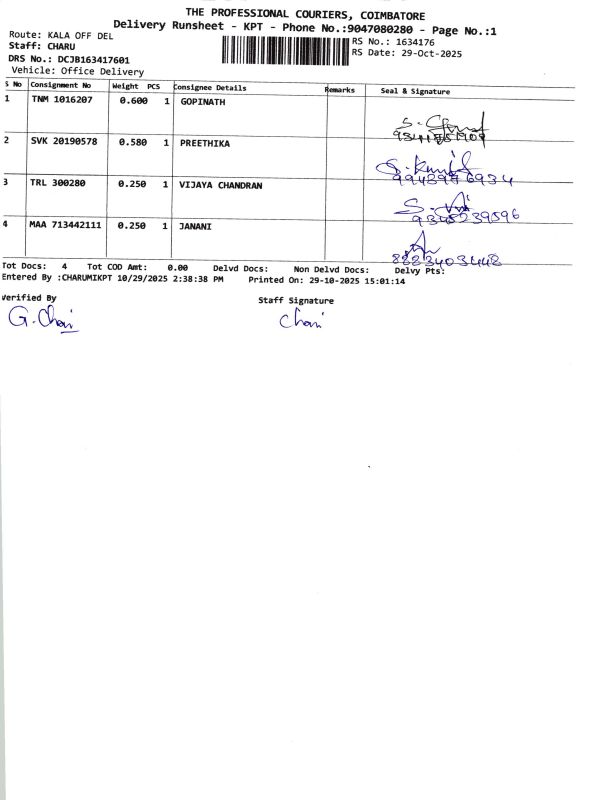 THE PROFESSIONAL COURIERS, COIMBATORE
Delivery Runsheet - KPT - Phone No.:9047080280 - Page No.:1
Route: KALA OFF DEL
RS No.: 1634176
Staff: CHARU
RS Date: 29-Oct-2025
DRS No.: DCJB163417601
Vehicle: Office Delivery
S No Consignment No Weight PCS Consignee Details Remarks Seal & Signature
1 TNM 1016207 0.600 1 GOPINATH
2 SVK 20190578 0.580 1 PREETHIKA
9943976934
3 TRL 300280 0.250 1 VIJAYA CHANDRAN
9345239596
4 MAA 713442111 0.250 1 JANANI
8883403448
Tot Docs: 4 Tot COD Amt: 0.00 Delvd Docs: Non Delvd Docs: Delvy Pts:
Entered By :CHARUMIKPT 10/29/2025 2:38:38 PM Printed On: 29-10-2025 15:01:14
Verified By Staff Signature